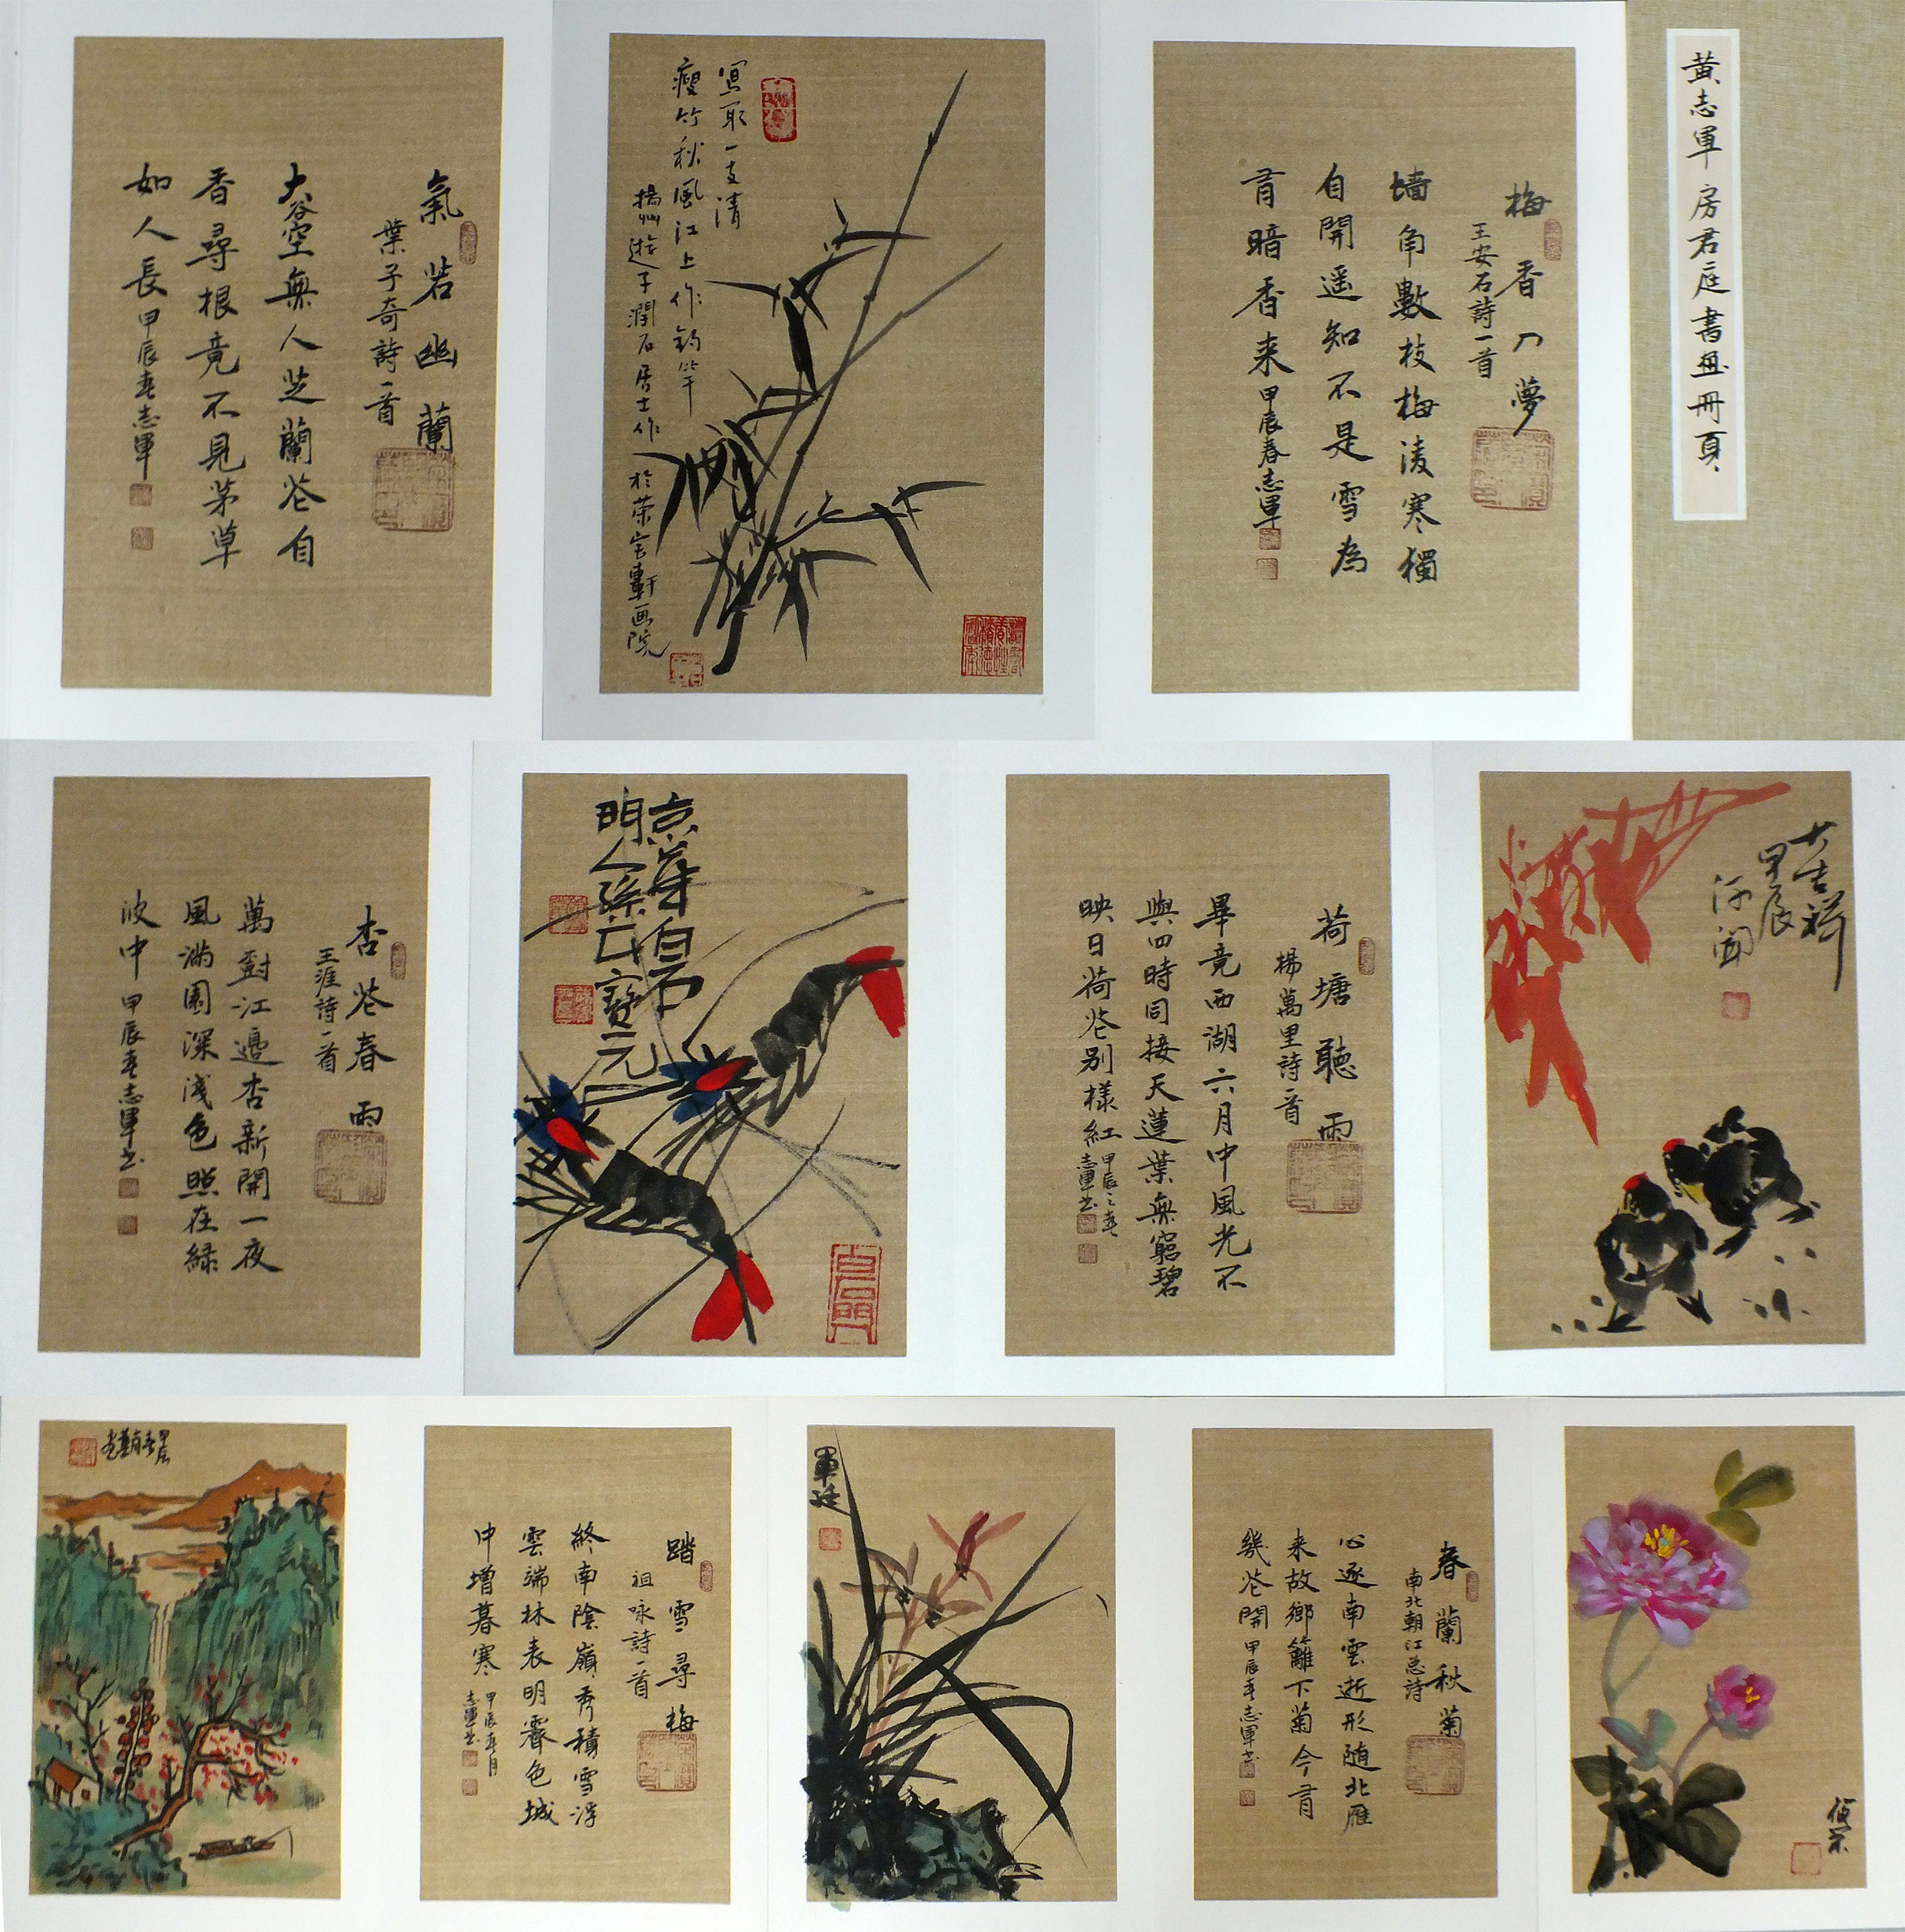 黃志軍 房君庭書畫冊頁
梅香入夢
王安石詩一首
墙角數枝梅淩寒獨
自開遥知不是雪為
有暗香来甲辰春志軍
寫取一支清
瘦竹秋風江上作釣竿
揚州遊子潤石居士作於荣宝軒画院
氣若幽蘭
葉子奇詩一首
大谷空無人芝蘭花自
香尋根竟不見茅草
如人長甲辰春志軍
大吉祥
甲辰
荷塘聽雨
楊萬里詩一首
畢竟西湖六月中風光不
與四時同接天蓮葉無窮碧
映日荷花别樣紅甲辰之春
志軍书
京華白石
門人孫寶元
白石門
杏花春雨
王涯詩一首
萬樹江邊杏新開一夜
風满園深浅色照在緑
波中甲辰春志軍书
春蘭秋菊
南北朝江总詩
心逐南雲逝形随北雁
来故鄉籬下菊今有
幾花開甲辰春志軍书
軍廷
踏雪尋梅
祖咏詩一首
終南陰嶺秀積雪浮
雲端林表明霽色城
中增暮寒甲辰春月
志軍书
甲辰春